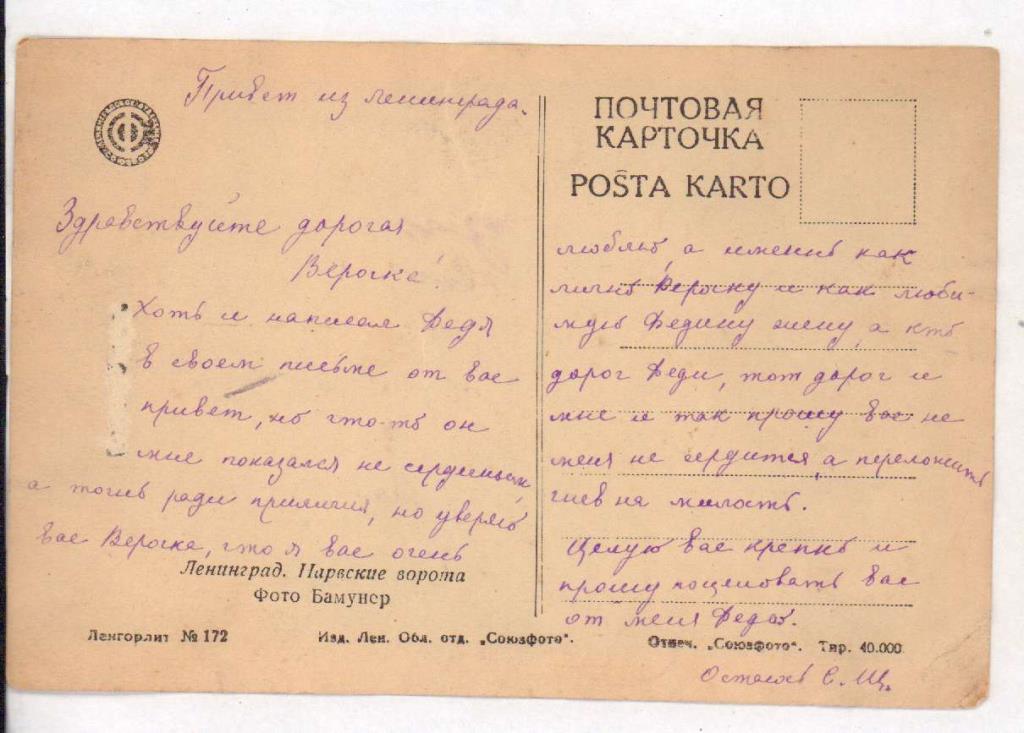 Привет из Ленинграда.
Здравствуйте дорогая
Вероске!
Хоть и написал Федя
в своем письме от вас
привет, но что-то он
мне показался не сердешным,
а точно ради приличия, но уверяю
вас Вероске, что я вас очень
Ленинград. Нарвские ворота
Фото Бамунер
Ленгорлит № 172
Изд. Лен. Обл. отд. „Союзфото“.
ПОЧТОВАЯ
КАРТОЧКА
POŜTA KARTO
люблю, а именно как
лично Вероску и как люби-
мую Федину жену, а кто
дорог Феди, тот дорог и
мне и так прошу вас не
меня не сердится, а переложить
гнев на милость.
Целую вас крепко и
прошу поцеловать вас
от меня Федю.
Отпеч. „Союзфото“. Тир. 40.000
Остаюсь С. Щ.